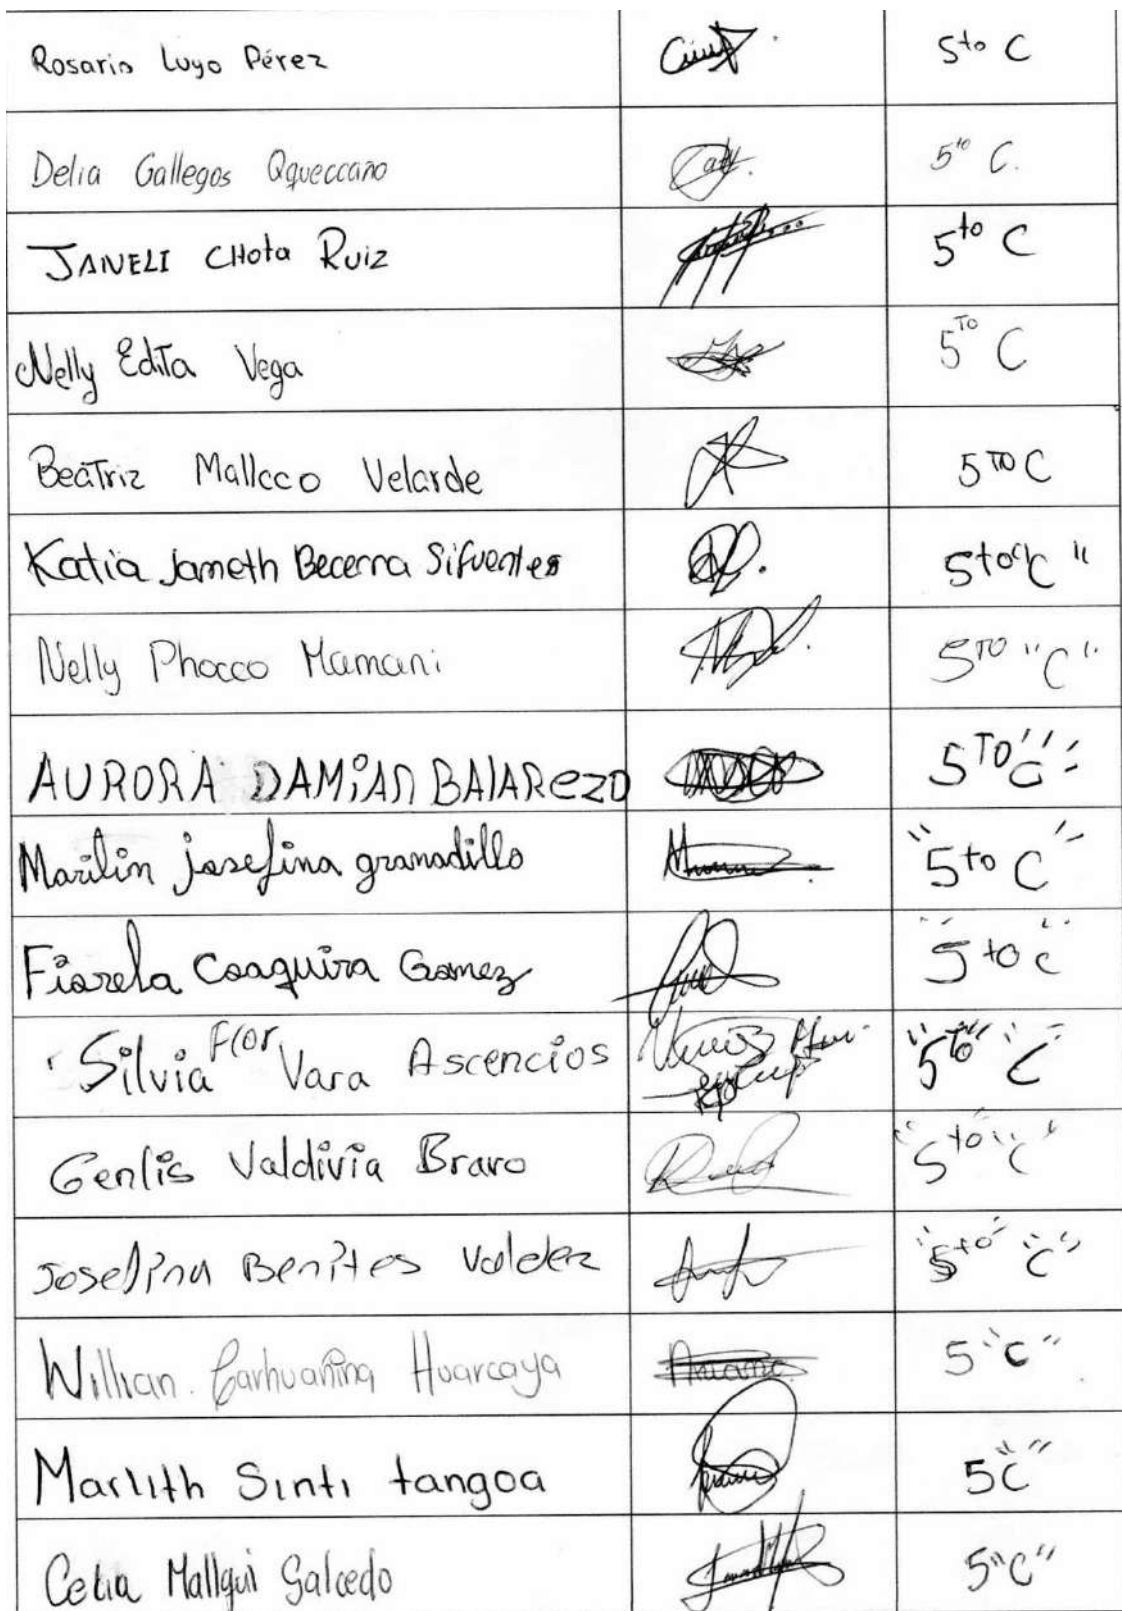 Rosario Luyo Pérez 5to C
Delia Gallegos Qqueccaño 5to C.
JANELI CHota Ruiz 5to C
Nelly Edita Vega 5TO C
Beatriz Mallcco Velarde 5TO C
Katia Jameth Becerra Sifuentes 5to "C"
Nelly Phocco Mamani 5TO "C"
AURORA DAMiAn BAlARezO 5TO "C"
Marilin josefina granadillo "5to C"
Fiorela Coaquira Gomez "5to C"
Silvia Flor Vara Ascencios "5to" "C"
Genlis Valdivia Bravo "5to" "C"
Josefina Benites Valdez "5to" "C"
Willian. Carhuañina Huarcaya 5 "C"
Marlith Sinti tangoa 5 "C"
Celia Mallqui Salcedo 5 "C"